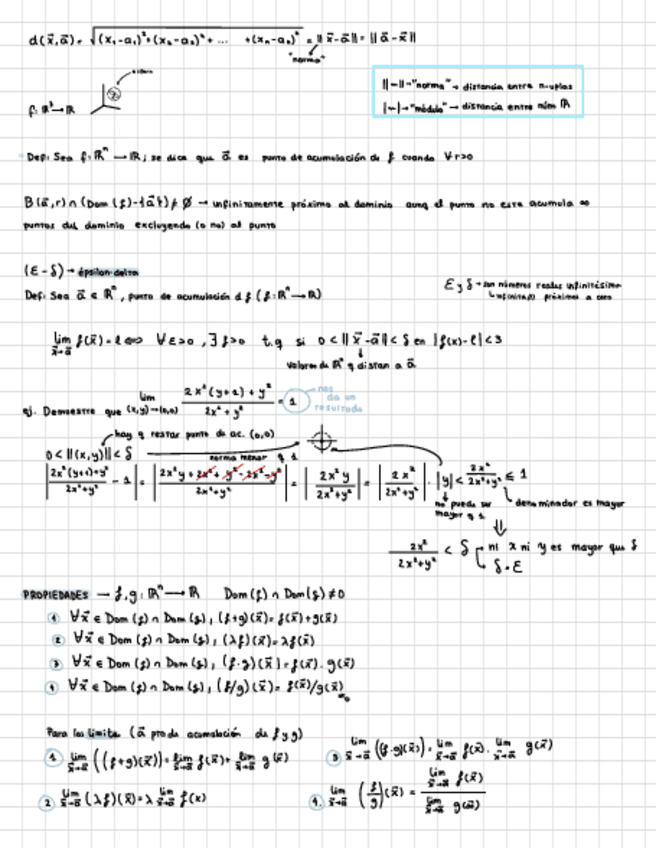 d(x⃗,a⃗) = √((x₁-a₁)²+(x₂-a₂)²+ ... +(xₙ-aₙ)²) = ||x⃗-a⃗|| = ||a⃗-x⃗||
"norma"
||-|| → "norma" → distancia entre n-uplas
|-| → "módulo" → distancia entre núm ℝ
f: ℝ³→ℝ
Def: Sea f: ℝⁿ → ℝ; se dice que a⃗ es punto de acumulación de f cuando ∀r>0
B(a⃗,r) ∩ (Dom(f)-{a⃗}) ≠ ∅ → infinitamente próximo al dominio aunq el punto no este acumula
puntos del dominio excluyendo (o no) al punto
(ε-δ) → épsilon-delta
ε y δ → son números reales infinitésimo
infinita próximos a cero
Def: Sea a⃗ ∈ ℝⁿ, punto de acumulación d f (f: ℝⁿ→ℝ)
lim x⃗→a⃗ f(x⃗) = ℓ ⟺ ∀ε>0, ∃δ>0 t.q si 0<||x⃗-a⃗||<δ en |f(x)-ℓ|<ε
valores de ℝⁿ q distan a a⃗
ej. Demuestre que lim (x,y)→(0,0) (2x²(y+1)+y²)/(2x²+y²) = 1
nos da un resultado
hay q restar punto de ac. (0,0)
0<||(x,y)||<δ
norma menor q 1
|(2x²(y+1)+y²)/(2x²+y²) - 1| = |(2x²y+2x²+y²-2x²-y²)/(2x²+y²)| = |2x²y/(2x²+y²)| = |2x²/(2x²+y²)| · |y| < 2x²/(2x²+y²) ≤ 1
no puede ser mayor q 1
denominador es mayor
⇓
2x²/(2x²+y²) < δ ni x ni y es mayor que δ
δ=ε
PROPIEDADES → f,g: ℝⁿ → ℝ Dom(f) ∩ Dom(g) ≠ 0
① ∀x⃗ ∈ Dom(f) ∩ Dom(g), (f+g)(x⃗) = f(x⃗)+g(x⃗)
② ∀x⃗ ∈ Dom(f) ∩ Dom(g), (λf)(x⃗) = λf(x⃗)
③ ∀x⃗ ∈ Dom(f) ∩ Dom(g), (f·g)(x⃗) = f(x⃗)·g(x⃗)
④ ∀x⃗ ∈ Dom(f) ∩ Dom(g), (f/g)(x⃗) = f(x⃗)/g(x⃗)
Para los límite (a⃗ pto de acumulación de f y g)
① lim x⃗→a⃗ ((f+g)(x⃗)) = lim x⃗→a⃗ f(x⃗) + lim x⃗→a⃗ g(x⃗)
③ lim x⃗→a⃗ ((f·g)(x⃗)) = lim x⃗→a⃗ f(x⃗) · lim x⃗→a⃗ g(x⃗)
② lim x⃗→a⃗ (λf)(x⃗) = λ lim x⃗→a⃗ f(x)
④. lim x⃗→a⃗ (f/g)(x⃗) = lim x⃗→a⃗ f(x⃗) / lim x⃗→a⃗ g(x⃗)